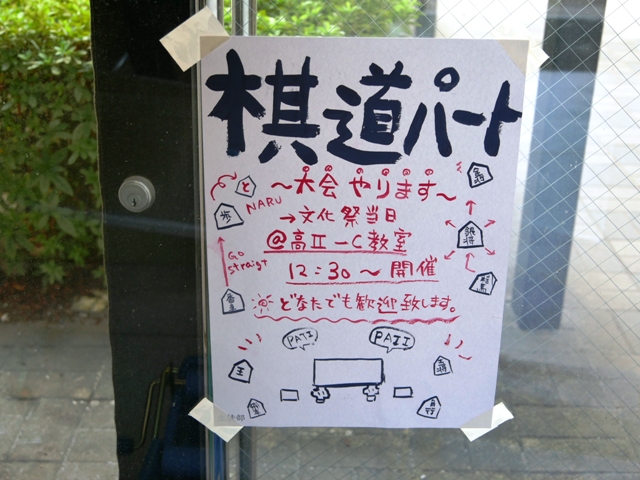 棋道パート
〜大会やります〜
と
NARU
歩
→文化祭当日
@高II-C教室
Go
straigt
12:30〜開催
香
※どなたでも歓迎致します。
銀将
PATI
PATI
王